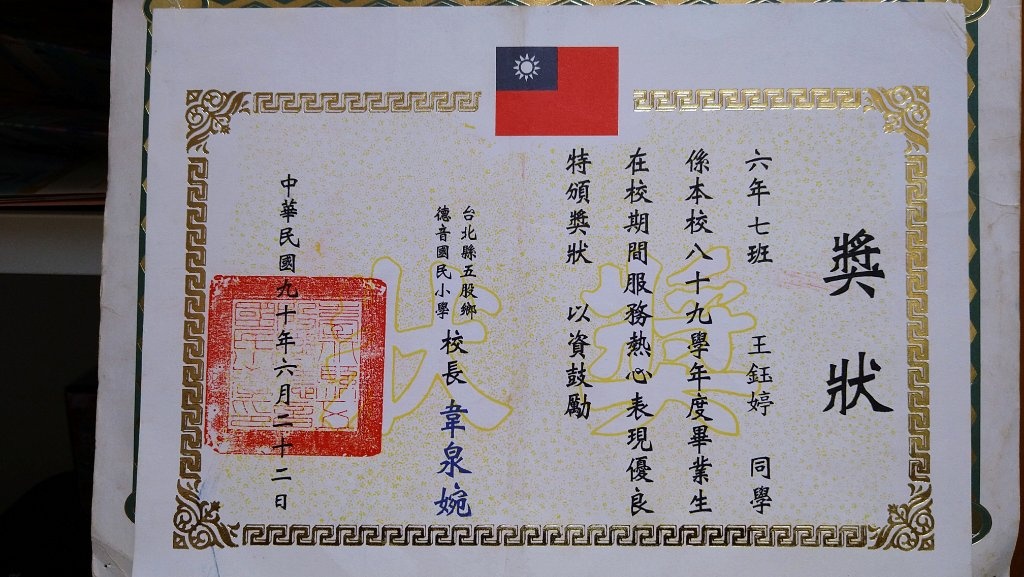 獎狀
六年七班 王鈺婷 同學
係本校八十九學年度畢業生
在校期間服務熱心表現優良
特頒獎狀 以資鼓勵
台北縣五股鄉
德音國民小學
校長 韋泉婉
中華民國九十年六月二十二日
獎狀